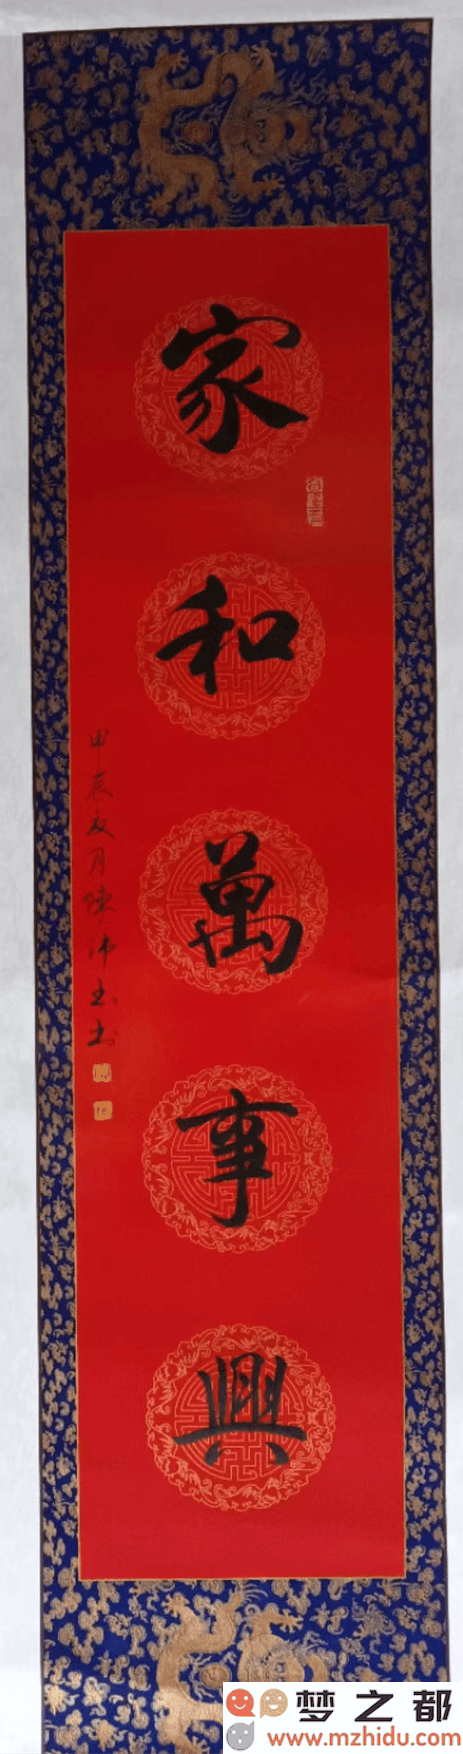 家和萬事興
甲辰夏月陳沛玉书
梦之都
www.mzhidu.com